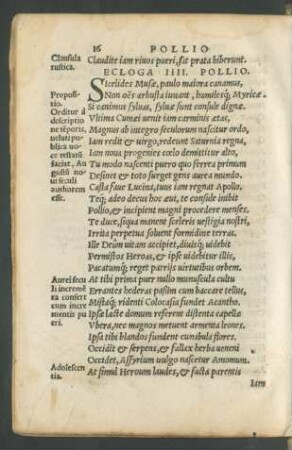 16 POLLIO
Clausula
rustica.
Claudite iam riuos pueri, sat prata biberunt.
ECLOGA IIII. POLLIO.
Sicelides Musæ, paulo maiora canamus,
Non oẽs arbusta iuuant, humilesq; Myricæ
Si canimus syluas, syluæ sunt consule dignæ.
Vltima Cumæi uenit iam carminis ætas,
Magnus ab integro seclorum nascitur ordo,
Iam redit & uirgo, redeunt Saturnia regna,
Iam noua progenies cœlo demittitur alto,
Tu modo nascenti puero quo ferrea primum
Desinet & toto surget gens aurea mundo.
Casta faue Lucina, tuus iam regnat Apollo.
Teq; adeo decus hoc æui, te consule inibit
Pollio, & incipient magni procedere menses.
Te duce, siqua manent sceleris uestigia nostri,
Irrita perpetua soluent formidine terras.
Ille Deûm uitam accipiet, diuisq; uidebit
Permistos Heroas, & ipse uidebitur illis,
Pacatumq; reget patrijs uirtutibus orbem.
At tibi prima puer nullo munuscula cultu
Errantes hederas passim cum baccare tellus,
Mistaq; ridenti Colocasia fundet Acantho.
Ipsæ lacte domum referent distenta capellæ
Vbera, nec magnos metuent armenta leones.
Ipsa tibi blandos fundent cunabula flores.
Occidet & serpens, & fallax herba ueneni
Occidet, Assyrium uulgo nascetur Amomum.
At simul Heroum laudes, & facta parentis
Iam
Propositio.
Orditur à
descriptio
ne tẽporis,
ut
publica
uoce
factum
Augusto
no
ui seculi
authorem
esse.
Aurei secu
li incremẽ
ta confert
cum incre
mentis pu
eri.
Adolescen
tia.